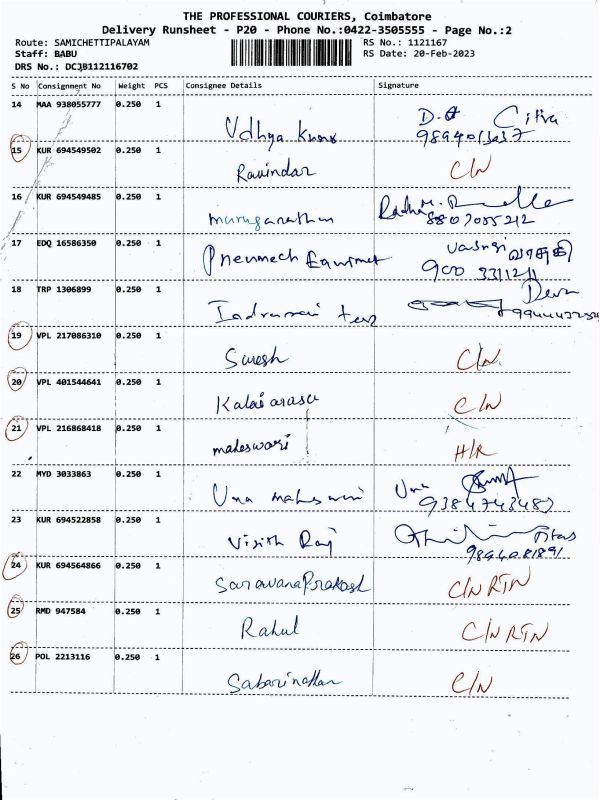 THE PROFESSIONAL COURIERS, Coimbatore
Delivery Runsheet - P20 - Phone No.:0422-3505555 - Page No.:2
Route: SAMICHETTIPALAYAM RS No.: 1121167
Staff: BABU RS Date: 20-Feb-2023
DRS No.: DCJB112116702
S No Consignment No Weight PCS Consignee Details Signature
14 MAA 938055777 0.250 1
15 KUR 694549502 0.250 1 Ravindar C/N
16 KUR 694549485 0.250 1 muruganathan 8807055212
17 EDQ 16586350 0.250 1 Pneumech 900 3311211
18 TRP 1306899 0.250 1
19 VPL 217086310 0.250 1 Suresh C/N
20 VPL 401544641 0.250 1 Kalaiarasu C/N
21 VPL 216868418 0.250 1 maheswari H/R
22 MYD 3033863 0.250 1 Uma maheswari Uma 9384743487
23 KUR 694522858 0.250 1 Visith Raj 9894081891
24 KUR 694564866 0.250 1 SaravanaPrakash C/N RTN
25 RMD 947584 0.250 1 Rahul C/N RTN
26 POL 2213116 0.250 1 Sabarinathan C/N